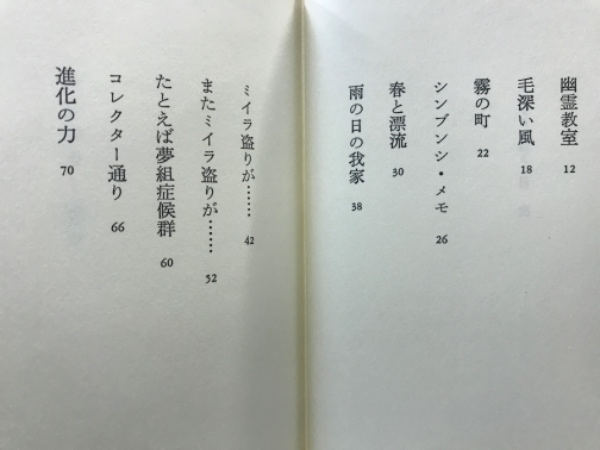 幽霊教室 12
毛深い風 18
霧の町 22
シンブンシ・メモ 26
春と漂流 30
雨の日の我家 38
ミイラ盗りが…… 42
またミイラ盗りが…… 52
たとえば夢組症候群 60
コレクター通り 66
進化の力 70